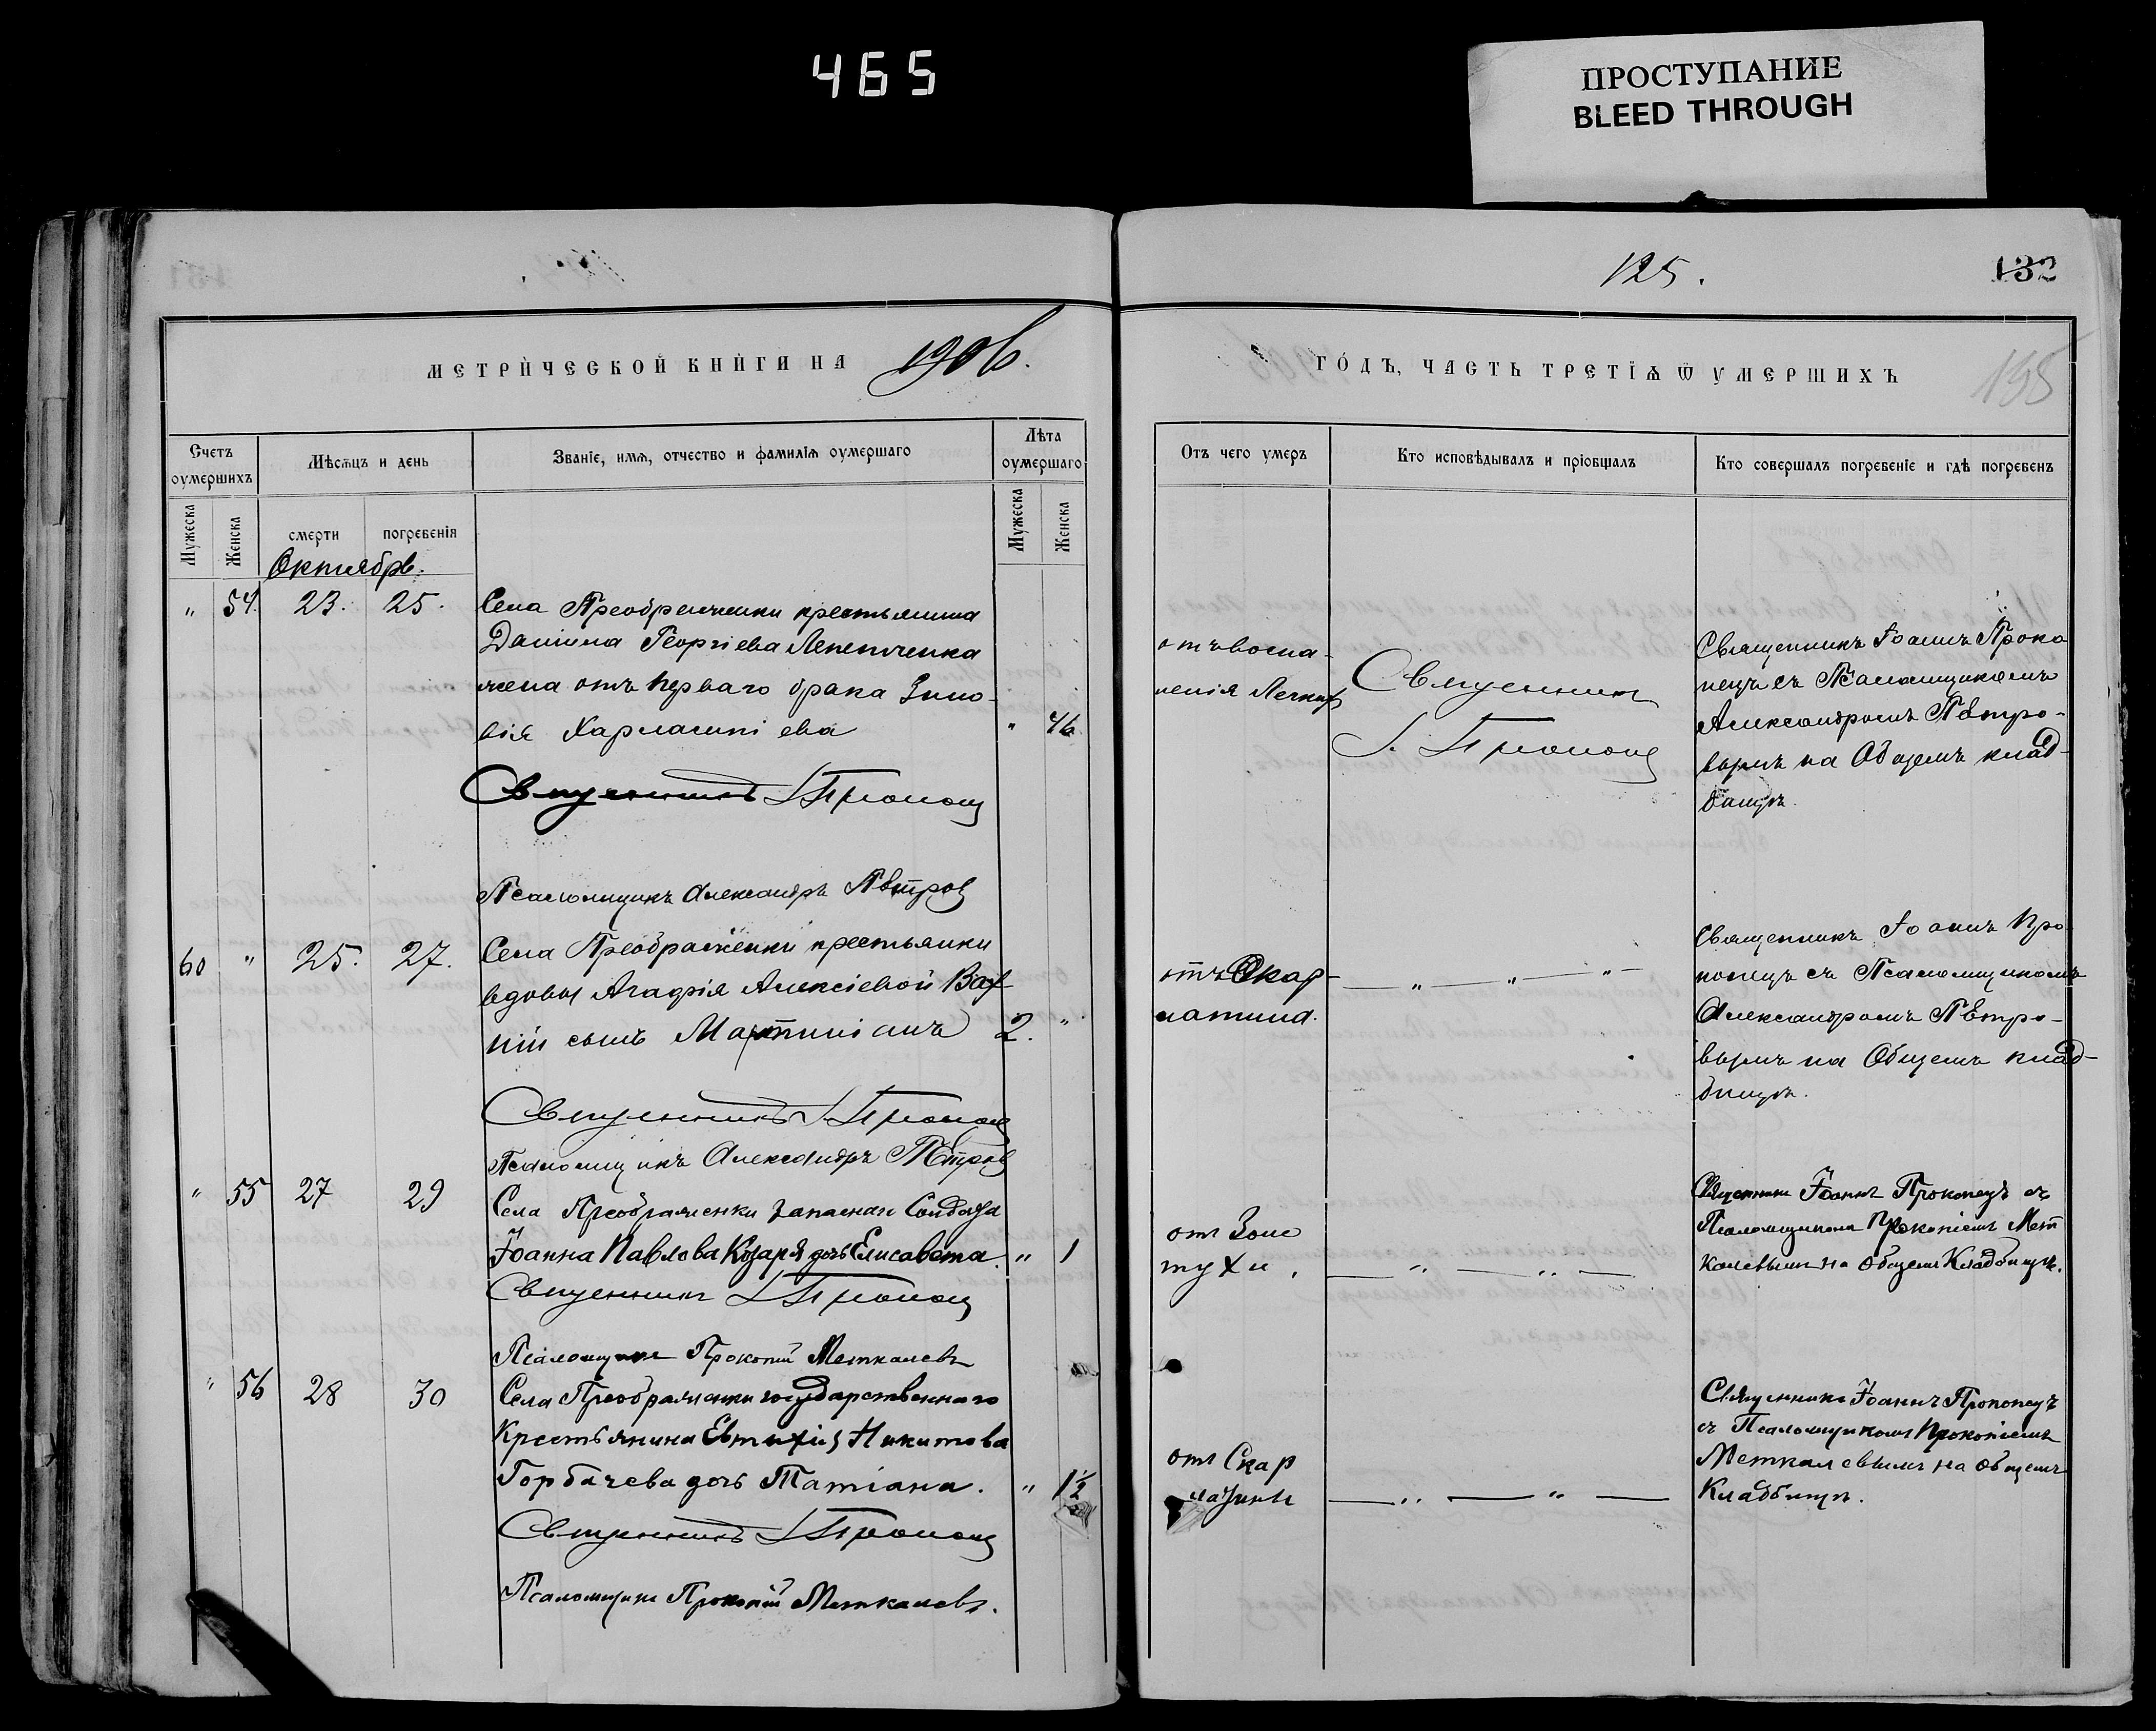 465
ПРОСТУПАНИЕ
BLEED THROUGH
125.
132
195
МЕТРИ́ЧЕСКОЙ КНИ́ГИ НА 1906.
ГО́ДЪ, ЧАСТЬ ТРЕТІѦ Ѿ УМЕРШИХЪ
Счетъ оумершихъ
Мѣсѧцъ и день
Званіе, имѧ, отчество и фамиліѧ оумершаго
Лѣта оумершаго
Отъ чего умеръ
Кто исповѣдывалъ и пріобщалъ
Кто совершалъ погребеніе и гдѣ погребенъ
Мужеска
Женска
смерти
погребенія
Мужеска
Женска
Октябрь.
" 54. 23. 25.
Села Преображенки крестьянина
Даніила Георгіева Лепетченка
жена отъ перваго брака Зино-
вія Харлампіева " 46.
Священникъ І. Прокопец
Псаломщикъ Александръ Пѣтров
отъ воспа-
ленія Легких
Священник
І. Прокопец
Священникъ Іоаннъ Проко
пецъ съ Псаломщикомъ
Александромъ Пѣтро-
вымъ на Общемъ клад-
бищѣ.
60 " 25. 27.
Села Преображенки крестьянки
вдовы Агафія Алексіевой
сынъ Мартиніанъ 2. "
Священникъ І. Прокопец
Псаломщикъ Александръ Пѣтров
отъ Скар-
латина.
— " — " —
Священникъ Іоаннъ Про-
копецъ съ Псаломщикомъ
Александромъ Пѣтро-
вымъ на Общемъ клад-
бищѣ.
" 55 27 29
Села Преображенки запаснаго Солдата
Іоанна Павлова Козаря дочь Елисавета. " 1
Священникъ І. Прокопец
Псаломщикъ Прокопій Меткалевъ
от Золо
тухи.
— " — " —
Священникъ Іоаннъ Прокопецъ съ
Псаломщикомъ Прокопіемъ Мет
калевымъ на Общемъ Кладбищѣ.
" 56 28 30
Села Преображенки государственнаго
Крестьянина Евтихія Никитова
Горбачева дочь Татіана. " 1½
Священникъ І. Прокопец
Псаломщикъ Прокопій Меткалевъ.
отъ Скар
латины
— " — " —
Священникъ Іоаннъ Прокопецъ
съ Псаломщикомъ Прокопіемъ
Меткалевымъ на Общемъ
Кладбищѣ.